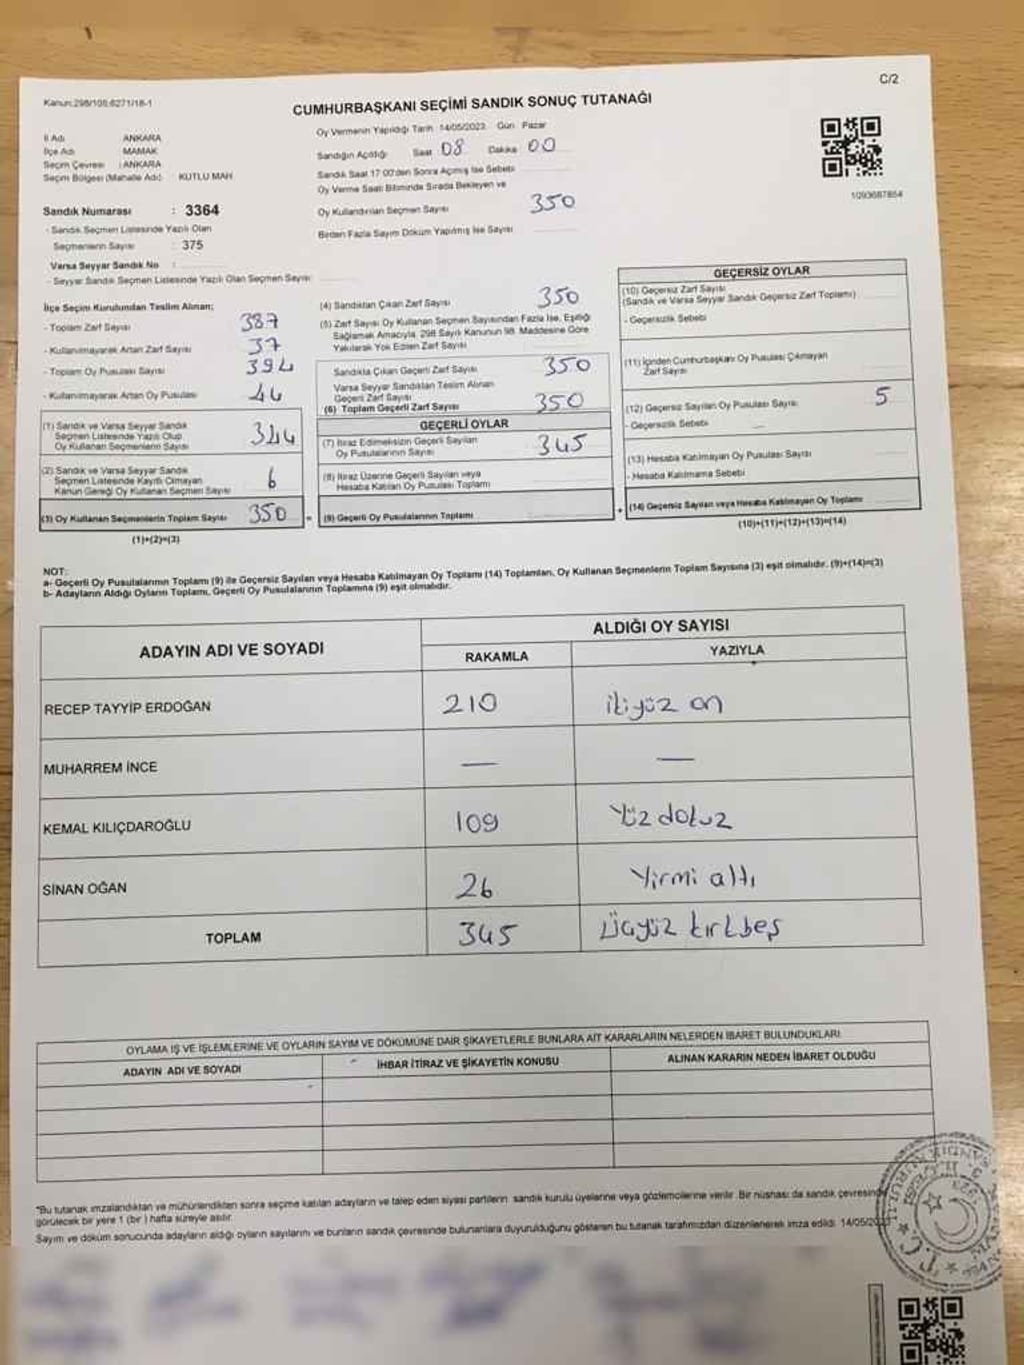 C/2
Kanun:298/105;6271/18-1
CUMHURBAŞKANI SEÇİMİ SANDIK SONUÇ TUTANAĞI
İl Adı ANKARA
İlçe Adı MAMAK
Seçim Çevresi : ANKARA
Seçim Bölgesi (Mahalle Adı) : KUTLU MAH
Sandık Numarası : 3364
- Sandık Seçmen Listesinde Yazılı Olan
Seçmenlerin Sayısı : 375
Varsa Seyyar Sandık No :
- Seyyar Sandık Seçmen Listesinde Yazılı Olan Seçmen Sayısı:
Oy Vermenin Yapıldığı Tarih 14/05/2023 Gün Pazar
Sandığın Açıldığı Saat 08 Dakika 00
Sandık Saat 17:00'den Sonra Açılmış İse Sebebi
Oy Verme Saati Bitiminde Sırada Bekleyen ve
Oy Kullandırılan Seçmen Sayısı 350
Birden Fazla Sayım Döküm Yapılmış İse Sayısı
1093687854
İlçe Seçim Kurulundan Teslim Alınan;
- Toplam Zarf Sayısı 387
- Kullanılmayarak Artan Zarf Sayısı 37
- Toplam Oy Pusulası Sayısı 394
- Kullanılmayarak Artan Oy Pusulası 44
(1) Sandık ve Varsa Seyyar Sandık
Seçmen Listesinde Yazılı Olup
Oy Kullanan Seçmenlerin Sayısı 344
(2) Sandık ve Varsa Seyyar Sandık
Seçmen Listesinde Kayıtlı Olmayan
Kanun Gereği Oy Kullanan Seçmen Sayısı 6
(3) Oy Kullanan Seçmenlerin Toplam Sayısı 350
(1)+(2)=(3)
(4) Sandıktan Çıkan Zarf Sayısı 350
(5) Zarf Sayısı Oy Kullanan Seçmen Sayısından Fazla İse, Eşitliği
Sağlamak Amacıyla, 298 Sayılı Kanunun 98. Maddesine Göre
Yakılarak Yok Edilen Zarf Sayısı
Sandıkta Çıkan Geçerli Zarf Sayısı 350
Varsa Seyyar Sandıktan Teslim Alınan
Geçerli Zarf Sayısı
(6) Toplam Geçerli Zarf Sayısı 350
GEÇERLİ OYLAR
(7) İtiraz Edilmeksizin Geçerli Sayılan
Oy Pusulalarının Sayısı 345
(8) İtiraz Üzerine Geçerli Sayılan veya
Hesaba Katılan Oy Pusulası Toplamı
= (9) Geçerli Oy Pusulalarının Toplamı
GEÇERSİZ OYLAR
(10) Geçersiz Zarf Sayısı
(Sandık ve Varsa Seyyar Sandık Geçersiz Zarf Toplamı)
- Geçersizlik Sebebi
(11) İçinden Cumhurbaşkanı Oy Pusulası Çıkmayan
Zarf Sayısı
(12) Geçersiz Sayılan Oy Pusulası Sayısı 5
- Geçersizlik Sebebi
(13) Hesaba Katılmayan Oy Pusulası Sayısı
- Hesaba Katılmama Sebebi
+ (14) Geçersiz Sayılan veya Hesaba Katılmayan Oy Toplamı
(10)+(11)+(12)+(13)=(14)
NOT:
a- Geçerli Oy Pusulalarının Toplamı (9) ile Geçersiz Sayılan veya Hesaba Katılmayan Oy Toplamı (14) Toplamları, Oy Kullanan Seçmenlerin Toplam Sayısına (3) eşit olmalıdır. (9)+(14)=(3)
b- Adayların Aldığı Oyların Toplamı, Geçerli Oy Pusulalarının Toplamına (9) eşit olmalıdır.
ADAYIN ADI VE SOYADI ALDIĞI OY SAYISI
RAKAMLA YAZIYLA
RECEP TAYYİP ERDOĞAN 210 ikiyüz on
MUHARREM İNCE — —
KEMAL KILIÇDAROĞLU 109 Yüz dokuz
SİNAN OĞAN 26 Yirmi altı
TOPLAM 345 Üçyüz kırkbeş
OYLAMA İŞ VE İŞLEMLERİNE VE OYLARIN SAYIM VE DÖKÜMÜNE DAİR ŞİKAYETLERLE BUNLARA AİT KARARLARIN NELERDEN İBARET BULUNDUKLARI
ADAYIN ADI VE SOYADI İHBAR İTİRAZ VE ŞİKAYETİN KONUSU ALINAN KARARIN NEDEN İBARET OLDUĞU
"Bu tutanak imzalandıktan ve mühürlendikten sonra seçime katılan adayların ve talep eden siyasi partilerin sandık kurulu üyelerine veya gözlemcilerine verilir. Bir nüshası da sandık çevresinde
görülecek bir yere 1 (bir ) hafta süreyle asılır.
Sayım ve döküm sonucunda adayların aldığı oyların sayılarını ve bunların sandık çevresinde bulunanlara duyurulduğunu gösteren bu tutanak tarafımızdan düzenlenerek imza edildi. 14/05/2023"
T.C.